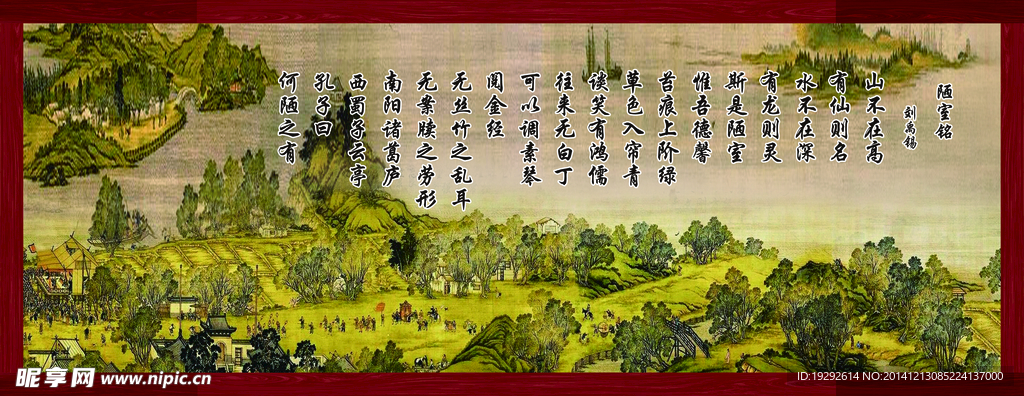 陋室铭
刘禹锡
山不在高
有仙则名
水不在深
有龙则灵
斯是陋室
惟吾德馨
苔痕上阶绿
草色入帘青
谈笑有鸿儒
往来无白丁
可以调素琴
阅金经
无丝竹之乱耳
无案牍之劳形
南阳诸葛庐
西蜀子云亭
孔子曰
何陋之有
昵享网 www.nipic.cn
ID:19292614 NO:20141213085224137000